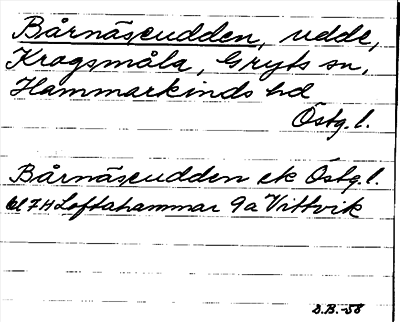 Bårnäsudden, udde,
Krogsmåla, Gryts sn,
Hammarkinds hd
Östg. l.
Bårnäsudden ek Östg. l.
bl 7H Loftahammar 9a Vittvik
D.B.-58